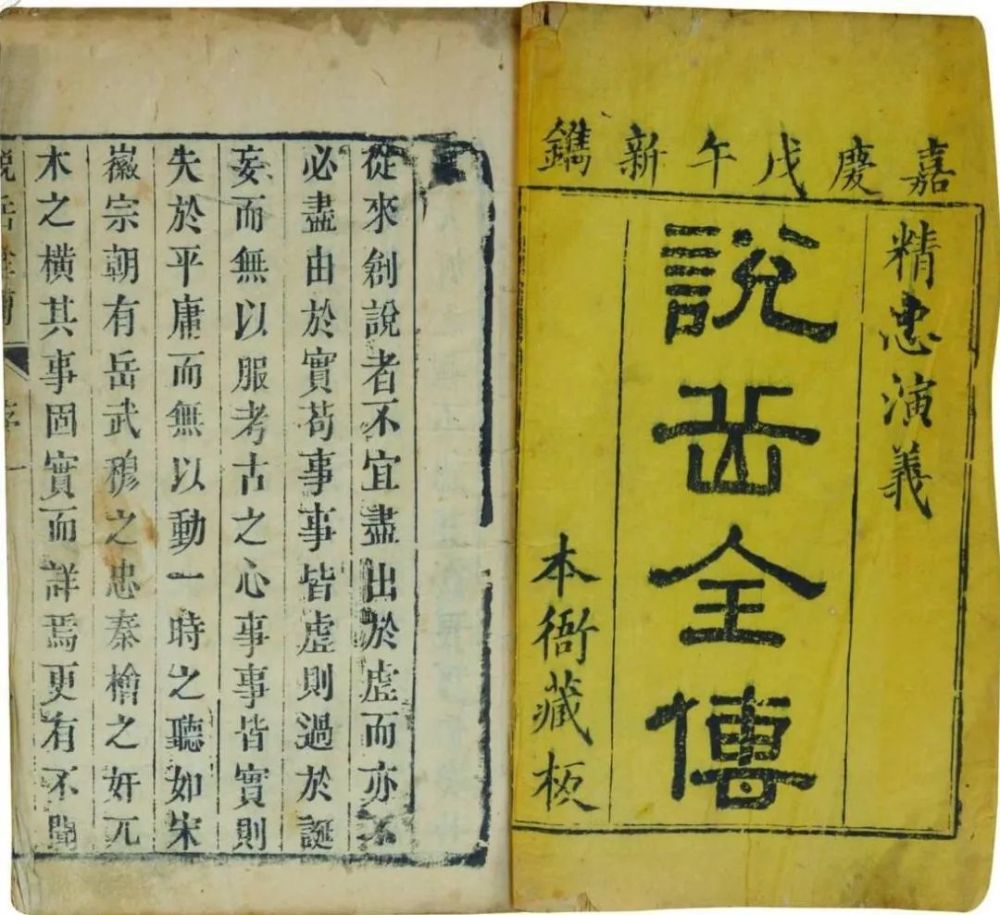 嘉慶戊午新鐫
精忠演義
說岳全傳
本衙藏板
從來創說者不宜盡出於虛而亦不
必盡由於實苟事事皆虛則過於誕
妄而無以服考古之心事事皆實則
失於平庸而無以動一時之聽如宋
徽宗朝有岳武穆之忠秦檜之奸兀
术之橫其事固實而詳焉更有不聞